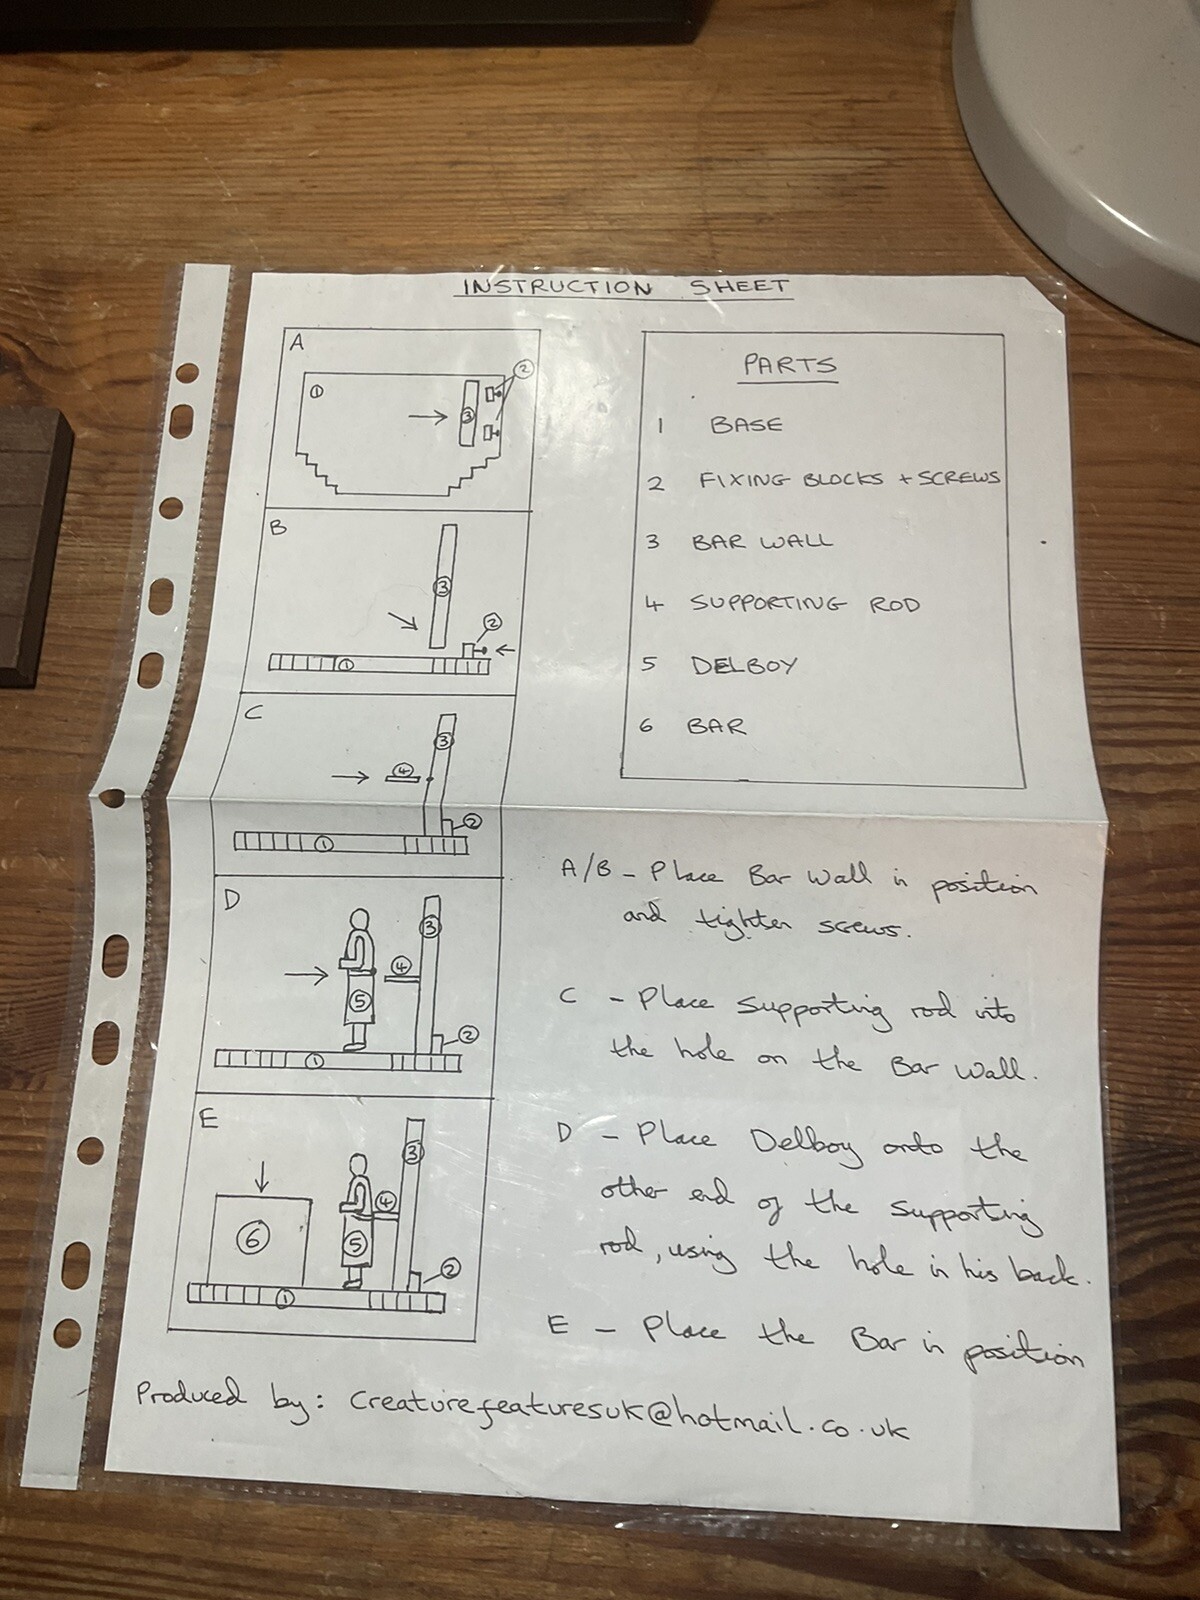 INSTRUCTION SHEET
A
1
2
3
B
3
2
1
C
3
4
2
1
D
3
4
5
2
1
E
3
4
6
5
2
1
PARTS
1 BASE
2 FIXING BLOCKS + SCREWS
3 BAR WALL
4 SUPPORTING ROD
5 DELBOY
6 BAR
A/B - Place Bar Wall in position
and tighten screws.
C - Place supporting rod into
the hole on the Bar Wall.
D - Place Delboy onto the
other end of the supporting
rod, using the hole in his back.
E - Place the Bar in position
Produced by: Creaturefeaturesuk@hotmail.co.uk